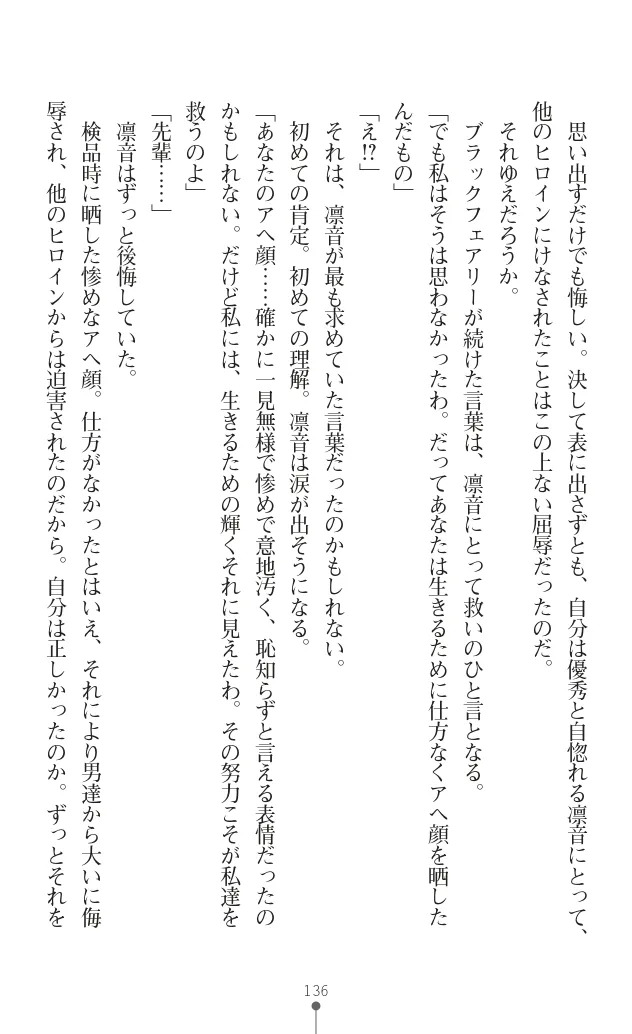 思い出すだけでも悔しい。決して表に出さずとも、自分は優秀と自惚れる凛音にとって、
他のヒロインにけなされたことはこの上ない屈辱だったのだ。
　それゆえだろうか。
　ブラックフェアリーが続けた言葉は、凛音にとって救いのひと言となる。
「でも私はそうは思わなかったわ。だってあなたは生きるために仕方なくアヘ顔を晒した
んだもの」
「え!?」
　それは、凛音が最も求めていた言葉だったのかもしれない。
　初めての肯定。初めての理解。凛音は涙が出そうになる。
「あなたのアヘ顔……確かに一見無様で惨めで意地汚く、恥知らずと言える表情だったの
かもしれない。だけど私には、生きるための輝くそれに見えたわ。その努力こそが私達を
救うのよ」
「先輩……」
　凛音はずっと後悔していた。
　検品時に晒した惨めなアヘ顔。仕方がなかったとはいえ、それにより男達から大いに侮
辱され、他のヒロインからは迫害されたのだから。自分は正しかったのか。ずっとそれを
136